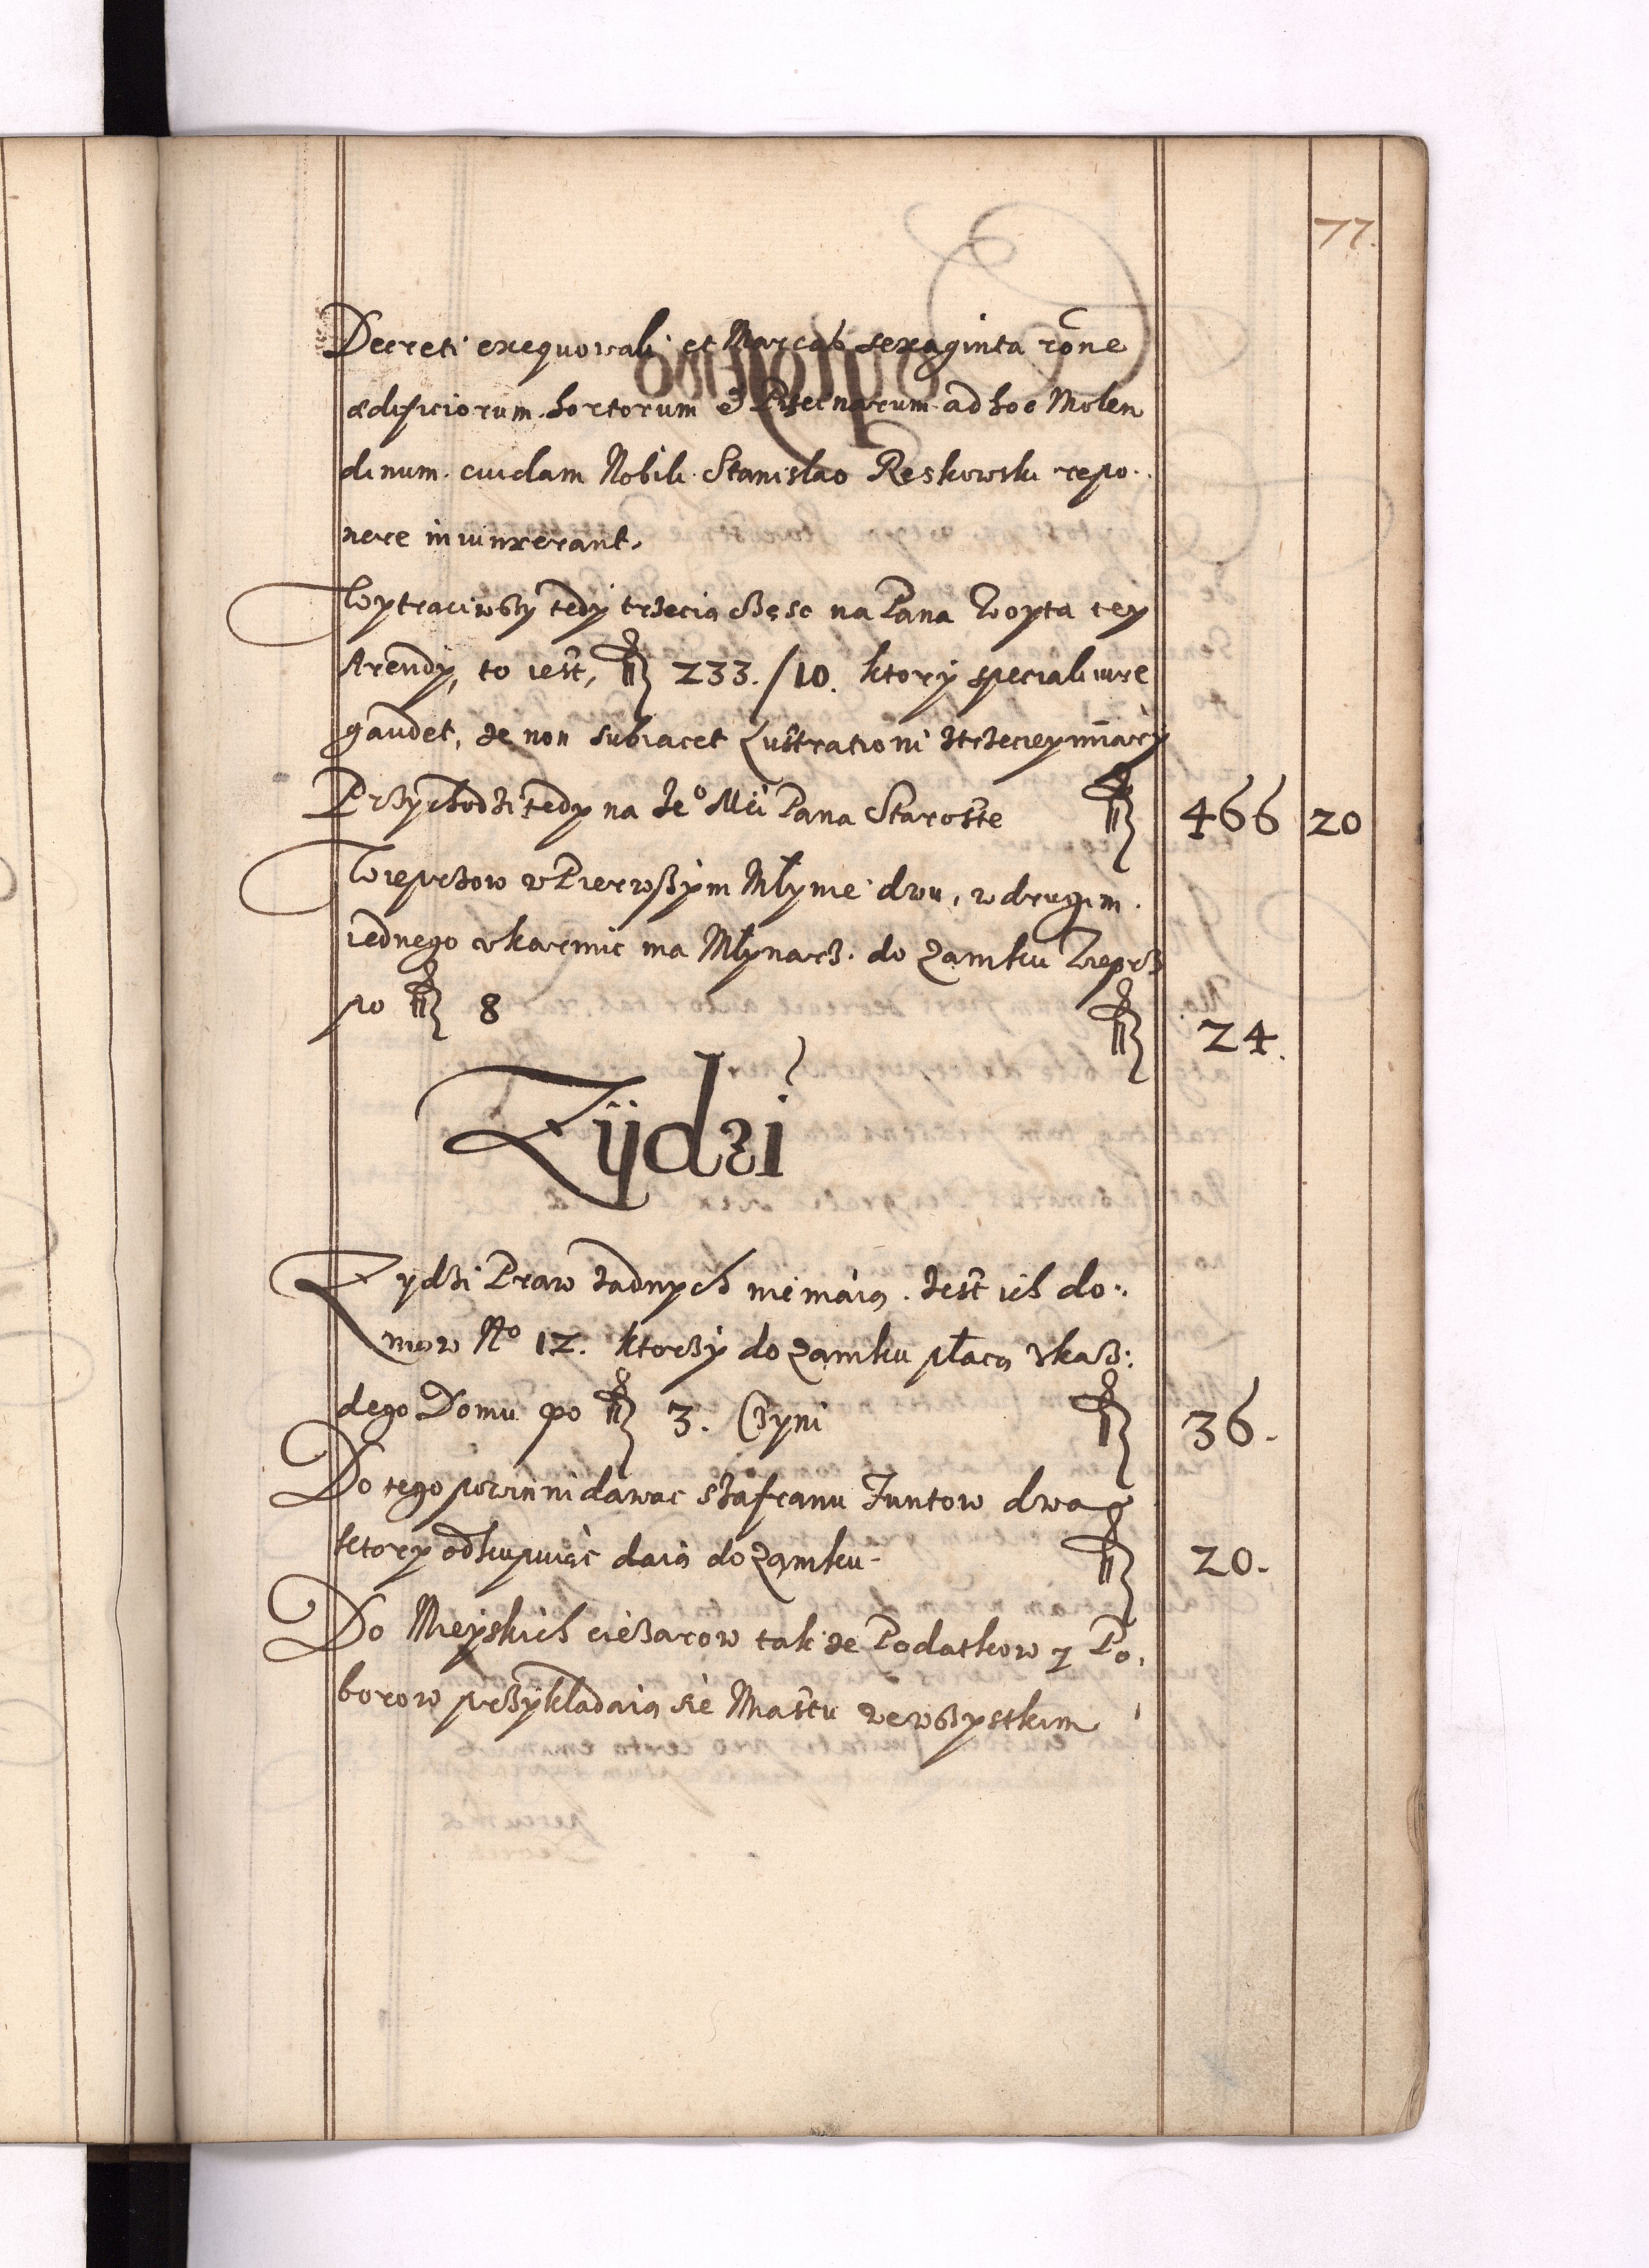 77.
Decreti exequovali et Marcas sexaginta rõne
ædificiorum hortorum et Piscinarum ad hoc Molen
dinum cuidam Nobili Stanislao Reskowski repo.
nere iniunxerant.
Wytraciwszy tedy trzecią część na Pana Woyta tey
Arendy, to iest, fl 233./10. ktory speciali iure
gaudet, że non subiacet Lustrationi
Przychodzi tedy na Jeº Mći Pana Starostę fl 466 20
Wieprzow w Pierwszym Młynie dwu, w drugim
iednego ukarmić ma Młynarz do Zamku Wieprz
po fl 8 fl 24.
Zÿdzi
Zydzi Praw żadnych nie máią. Jest ich do:
mow Nº 12. ktorzy do Zamku płacą z kaz:
dego Domu po fl 3. Czyni fl 36.
Do tego powinni dawać szafranu Funtow dwa
ktory odkupuiąc daią do Zamku fl 20.
Do Mieyskich ciężarow także Podatkow y Po.
borow przykładaią się Miastu we wszystkim